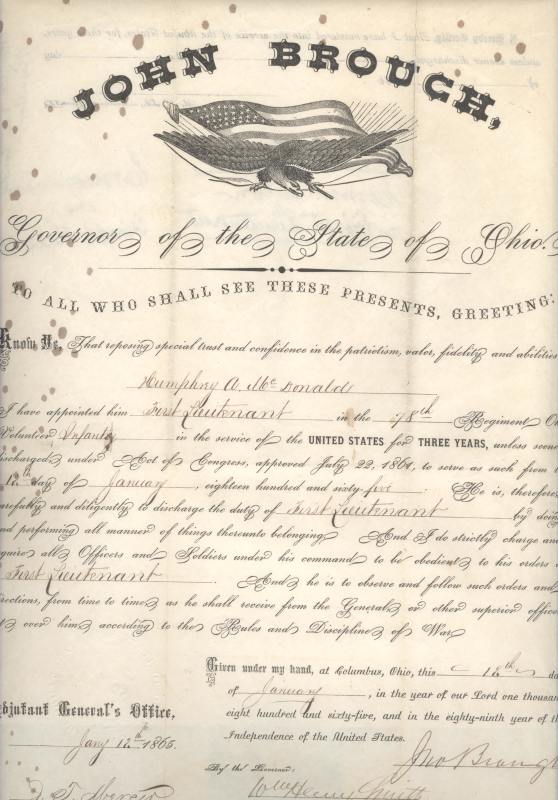 JOHN BROUGH,
Governor of the State of Ohio.
TO ALL WHO SHALL SEE THESE PRESENTS, GREETING:
Know Ye, That reposing special trust and confidence in the patriotism, valor, fidelity and abilities
Humphry A. Mc Donald
I have appointed him First Lieutenant in the 78th Regiment
Volunteer Infantry in the service of the UNITED STATES for THREE YEARS, unless
discharged, under Act of Congress, approved July 22, 1861, to serve as such from
12th day of January, eighteen hundred and sixty-five. He is, therefore,
carefully and diligently to discharge the duty of First Lieutenant by doing
and performing all manner of things thereunto belonging. And I do strictly charge and
require all Officers and Soldiers under his command to be obedient to his orders
First Lieutenant And he is to observe and follow such orders and
directions, from time to time, as he shall receive from the General, or other superior
set over him, according to the Rules and Discipline of War.
Given under my hand, at Columbus, Ohio, this 12th
of January, in the year of our Lord one thousand
eight hundred and sixty-five, and in the eighty-ninth year of
Independence of the United States.
Adjutant General's Office,
Jany 12th 1865.
Jno Brough
By the Governor:
Wm Henry Smith